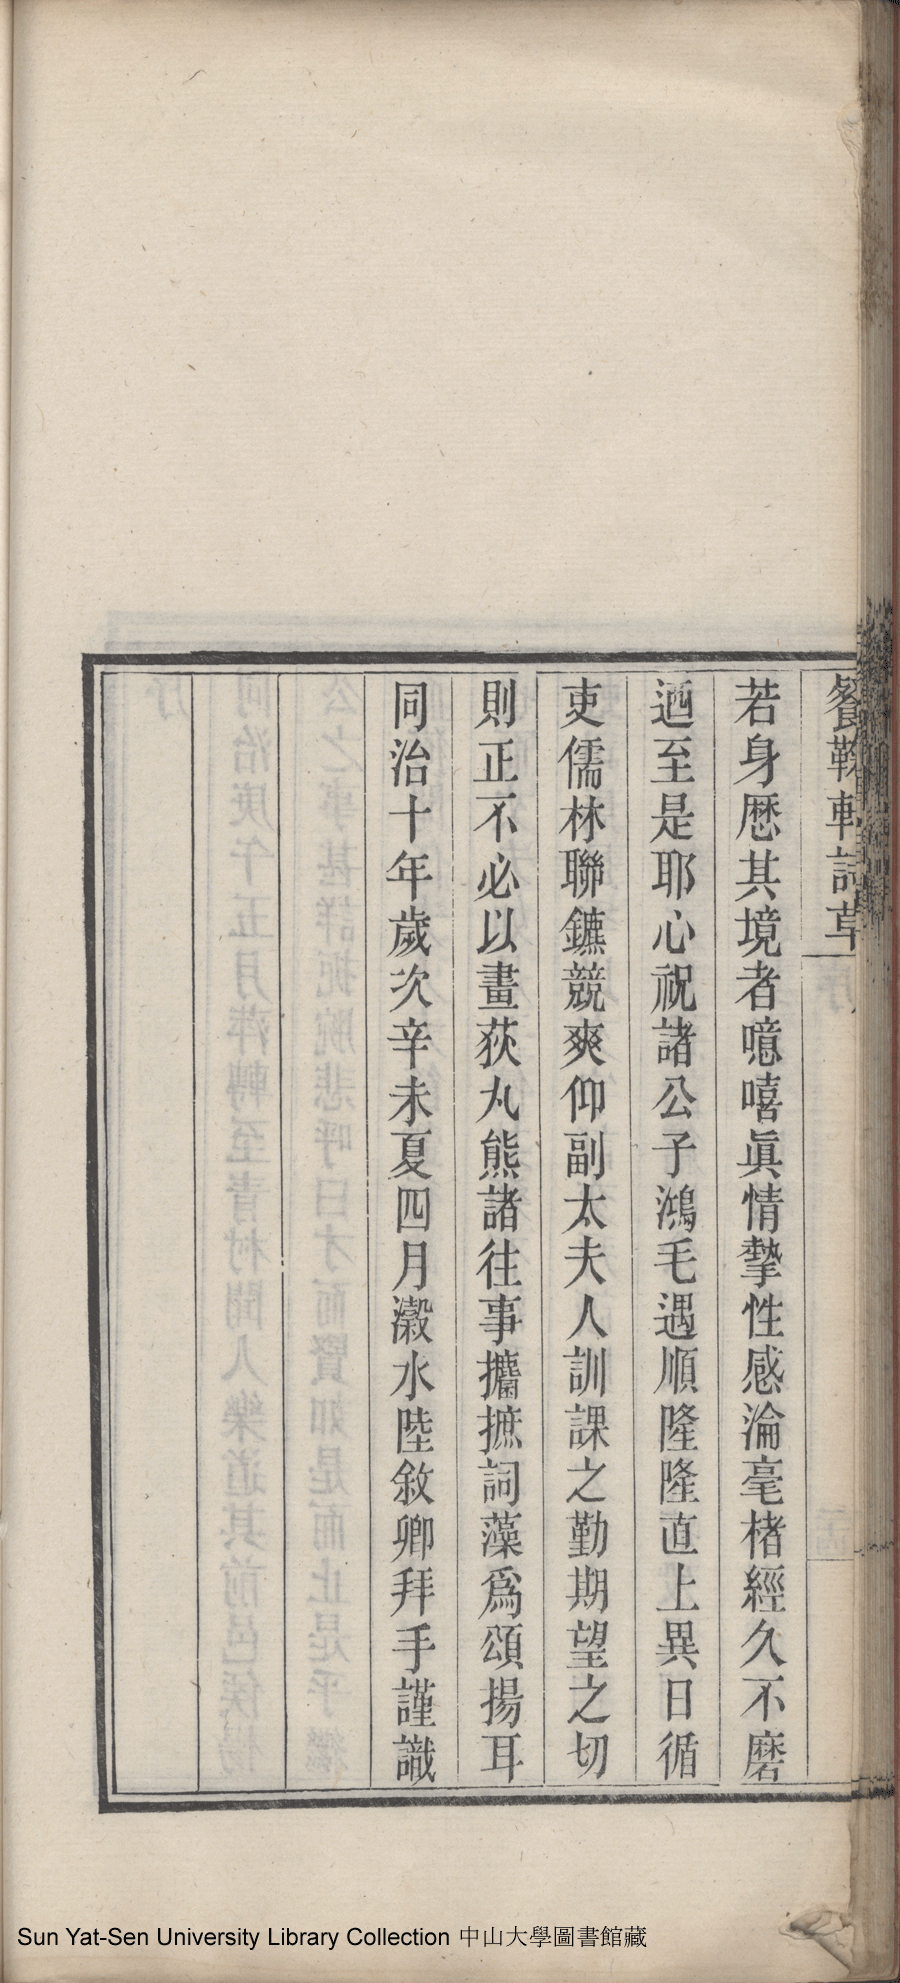 餐鞠軒詩草
若身歷其境者噫嘻眞情摯性感淪毫楮經久不磨
迺至是耶心祝諸公子鴻毛遇順隆隆直上異日循
吏儒林聯鑣競爽仰副太夫人訓課之勤期望之切
則正不必以畫荻丸熊諸往事攟摭詞藻爲頌揚耳
同治十年歲次辛未夏四月瀫水陸敘卿拜手謹識
Sun Yat-Sen University Library Collection 中山大學圖書館藏